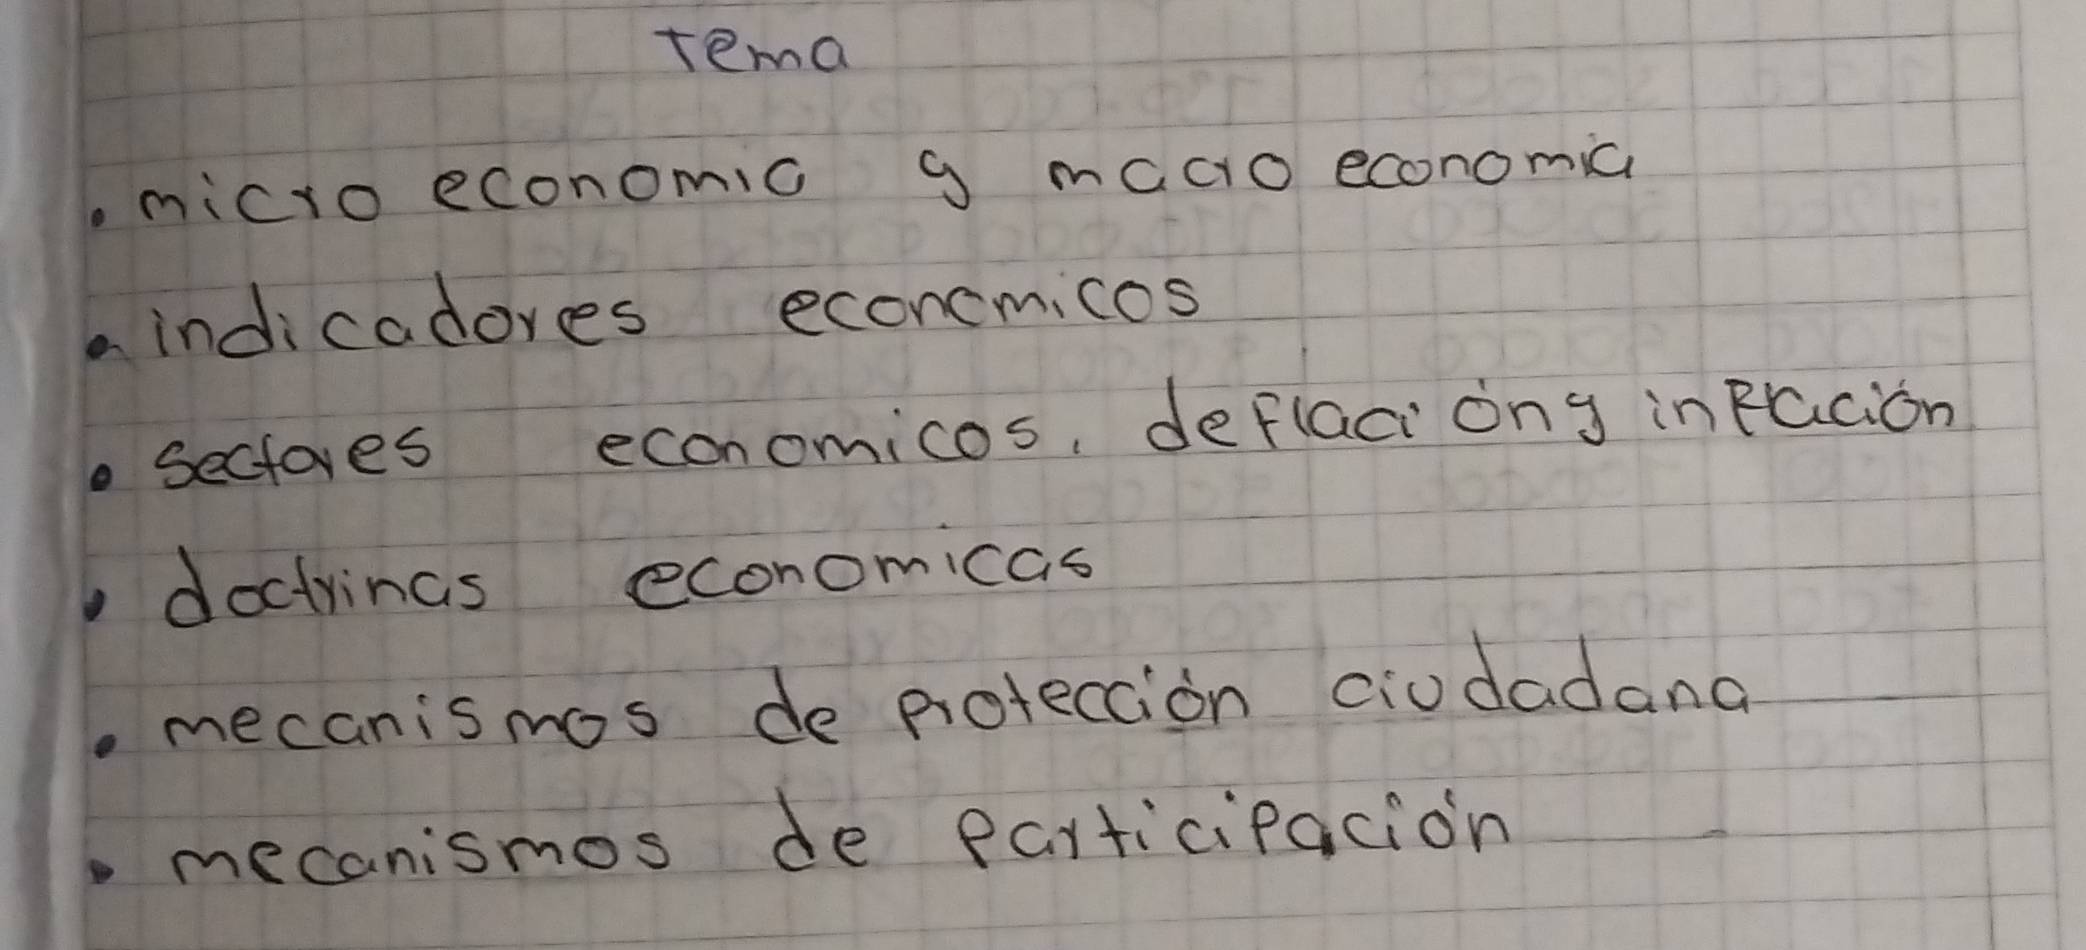 Tema
. micro economia y macro economia
. indicadores economicos
. sectores economicos, deflación y inflación
. doctrinas economicas
. mecanismos de protección ciudadana
. mecanismos de participación